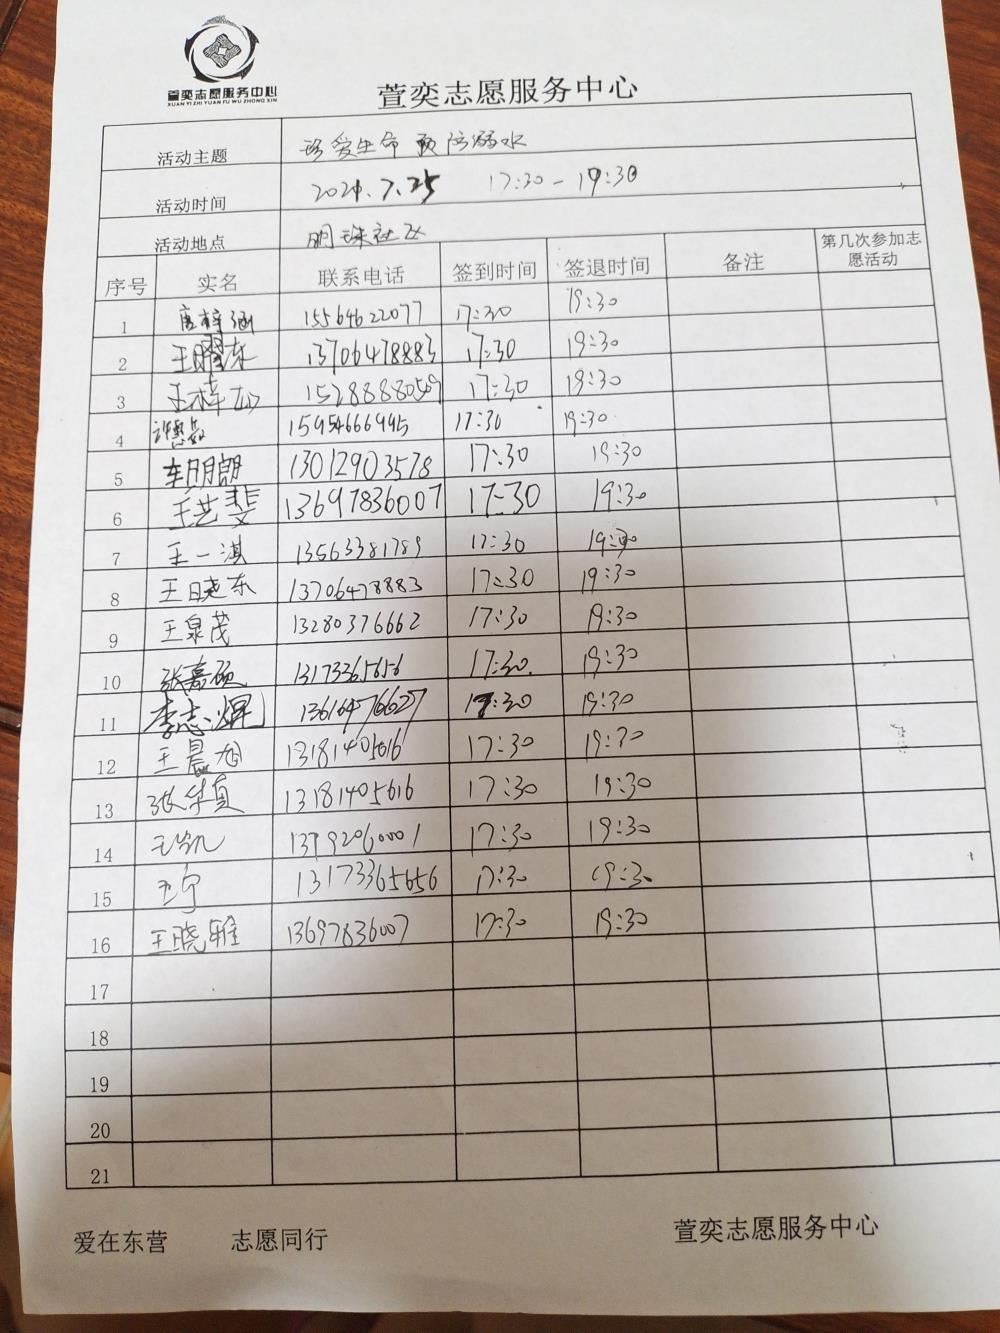 萱奕志愿服务中心
XUAN YI ZHI YUAN FU WU ZHONG XIN
萱奕志愿服务中心
活动主题 珍爱生命 预防溺水
活动时间 2021.7.25 17:30-19:30
活动地点 明珠社区
序号 实名 联系电话 签到时间 签退时间 备注 第几次参加志愿活动
1 唐梓涵 15564622077 17:30 19:30
2 王曜东 13706478883 17:30 19:30
3 15288880509 17:30 19:30
4 15954666995 17:30 19:30
5 車明朗 13012903578 17:30 19:30
6 王艺斐 13697836007 17:30 19:30
7 王一淇 13563381789 17:30 19:30
8 王晓东 13706478883 17:30 19:30
9 王泉茂 13280376662 17:30 19:30
10 张嘉硕 13173365656 17:30 19:30
11 李志墀 17:30 19:30
12 王晨旭 13181405616 17:30 19:30
13 张华真 13181405616 17:30 19:30
14 王凯 17:30 19:30
15 王宁 13173365656 17:30 19:30
16 王晓雅 13697836007 17:30 19:30
17
18
19
20
21
爱在东营 志愿同行 萱奕志愿服务中心